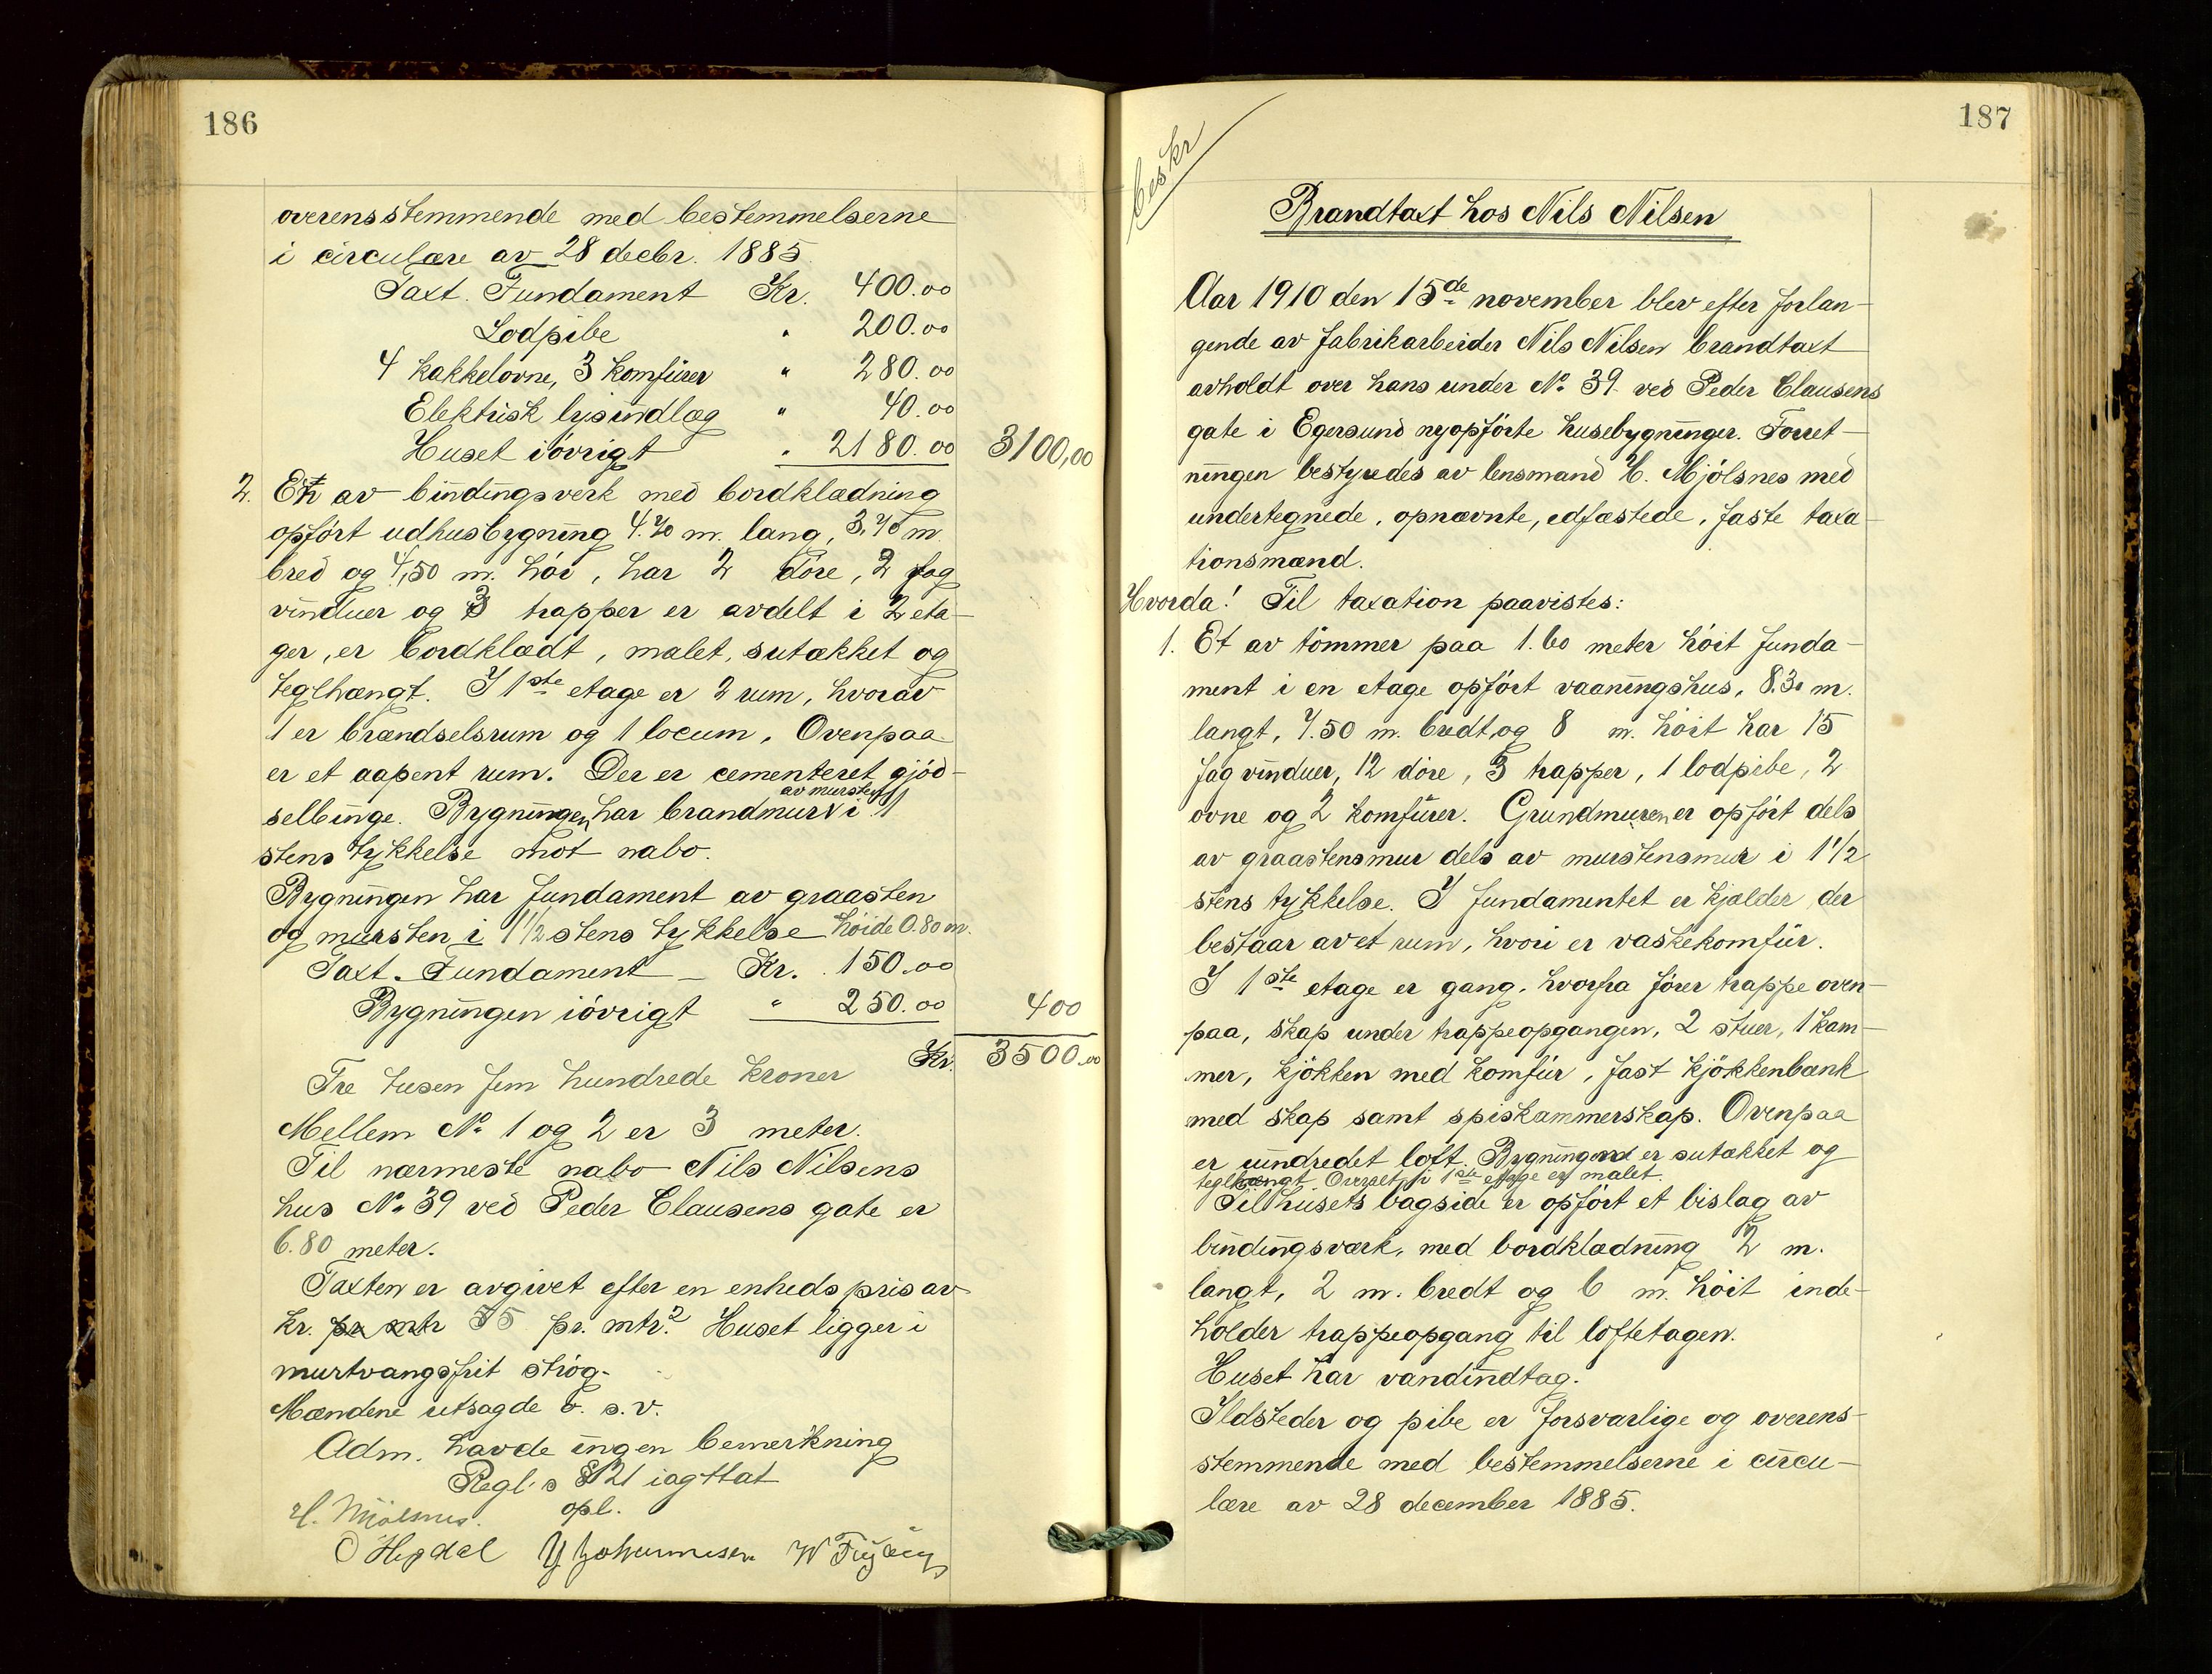 186
overensstemmende med bestemmelserne
i circulære av 28 decbr. 1885
Taxt. Fundament Kr. 400.00
Lodpibe " 200.00
4 kakkelovne, 3 komfürer " 280.00
Elektrisk lysindlæg " 40.00
Huset iövrigt " 2180.00 3100,00
2. Et av bindingsverk med bordklædning
opfört udhusbygning 4.70 m. lang, 3,70 m.
bred og 4,50 m. höi, har 2 döre, 2 fag
vinduer og 3 trapper er avdelt i 2 eta-
ger, er bordklædt, malet, sutækket og
teglhængt. I 1ste etage er 2 rum, hvorav
1 er brændselsrum og 1 locum. Ovenpaa
er et aapent rum. Der er cementeret gjöd-
av mursten
selbinge. Bygningen har brandmur i 1
stens tykkelse mot nabo.
Bygningen har fundament av graasten
og mursten i 1 1/2 stens tykkelse höide 0.80 m.
Taxt. Fundament - Kr. 150.00
Bygningen iövrigt " 250.00 400
Kr. 3500.00
Tre tusen fem hundrede kroner
Mellem No 1 og 2 er 3 meter.
Til nærmeste nabo Nils Nilsens
hus No 39 ved Peder Clausens gate er
6.80 meter.
Taxten er avgivet efter en enheds pris av
kr. pr mtr 55 pr. mtr.2 Huset ligger i
murtvangsfrit strög.
Mændene utsagde o. s. v.
Adm. havde ingen bemerkning
Regl.s § 21 iagttat
opl.
H. Mjölsnes.
O Hegdal Y Johannesen
187
beskr
Brandtaxt hos Nils Nilsen
Aar 1910 den 15de november blev efter forlan-
gende av fabrikarbeider Nils Nilsen brandtaxt
avholdt over hans under No 39 ved Peder Clausens
gate i Egersund nyopförte husebygninger. Forret-
ningen bestyredes av lensmand H. Mjölsnes med
undertegnede, opnævnte, edfæstede, faste taxa-
tionsmænd.
Hvorda! Til taxation paavistes:
1. Et av tömmer paa 1.60 meter höit funda-
ment i en etage opfört vaaningshus, 8.30 m.
langt, 7.50 m. bredt, og 8 m. höit har 15
fag vinduer, 12 döre, 3 trapper, 1 lodpibe, 2
ovne og 2 komfürer. Grundmuren er opfört dels
av graastensmur dels av murstensmur i 1 1/2
stens tykkelse. I fundamentet er kjælder, der
bestaar av et rum, hvori er vaskekomfür.
I 1ste etage er gang, hvorfra förer trappe oven-
paa, skap under trappeopgangen, 2 stuer, 1 kam-
mer, kjökken med komfür, fast kjökkenbænk
med skap samt spiskammerskap. Ovenpaa
er uindredet loft. Bygningen er sutækket og
teglhængt. Overalt i 1ste etage er malet.
Til husets bagside er opfört et bislag av
bindingsværk, med bordklædning 2 m.
langt, 2 m. bredt og 6 m. höit inde-
holder trappeopgang til loftetagen.
Huset har vandindtag.
Ildsteder og pibe er forsvarlige og overens-
stemmende med bestemmelserne i circu-
lære av 28 december 1885.